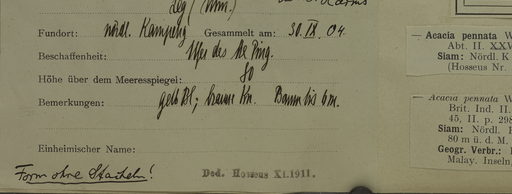 Leg.
Fundort: nördl. Kampeng Gesammelt am: 30. IX. 04.
Beschaffenheit: Ufer des Me Ping.
Höhe über dem Meeresspiegel: 80
Bemerkungen: gelb Bl; braune Kn. Baum bis 6m.
Einheimischer Name:
Form ohne Stacheln!
Ded. Hosseus XI.1911.
— Acacia pennata W
Abt. II. XXV
Siam: Nördl. K
(Hosseus Nr.
— Acacia pennata W
Brit. Ind. II.
45, II. p. 298
Siam: Nördl.
80 m ü. d. M.
Geogr. Verbr.:
Malay. Inseln,